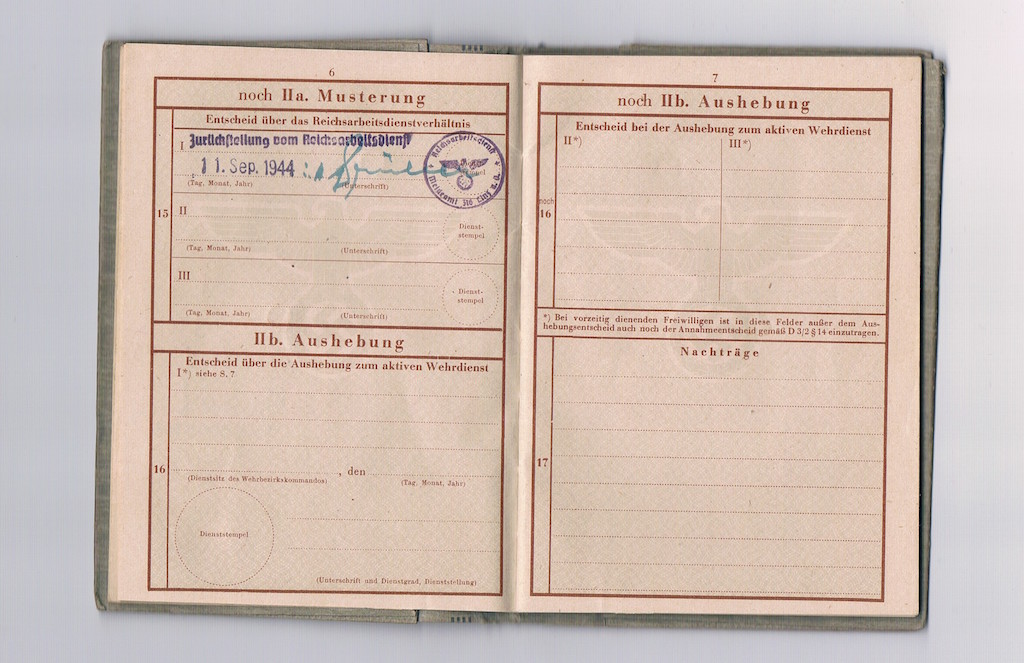 6
noch IIa. Musterung
Entscheid über das Reichsarbeitsdienstverhältnis
I Zurückstellung vom Reichsarbeitsdienst
11. Sep. 1944
(Tag, Monat, Jahr) (Unterschrift)
Reichsarbeitsdienst
Meldeamt 316 Linz a. D.
15
II
Dienst-
stempel
(Tag, Monat, Jahr) (Unterschrift)
III
Dienst-
stempel
(Tag, Monat, Jahr) (Unterschrift)
IIb. Aushebung
Entscheid über die Aushebung zum aktiven Wehrdienst
I*) siehe S. 7
16
, den
(Dienstsitz des Wehrbezirkskommandos) (Tag, Monat, Jahr)
Dienststempel
(Unterschrift und Dienstgrad, Dienststellung)
7
noch IIb. Aushebung
Entscheid bei der Aushebung zum aktiven Wehrdienst
II*) III*)
noch
16
*) Bei vorzeitig dienenden Freiwilligen ist in diese Felder außer dem Aus-
hebungsentscheid auch noch der Annahmeentscheid gemäß D 3/2 § 14 einzutragen.
Nachträge
17